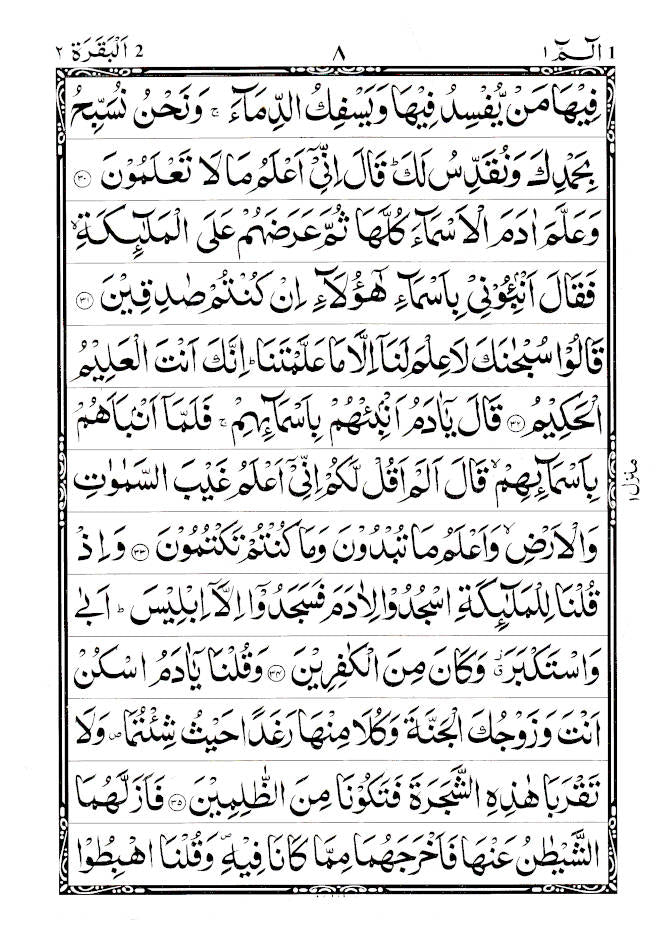 1 الٓمّٓ ١ ٨ 2 اَلْبَقَرَة ٢
فِيْهَا مَنْ يُّفْسِدُ فِيْهَا وَيَسْفِكُ الدِّمَآءَ ۚ وَنَحْنُ نُسَبِّحُ
بِحَمْدِكَ وَنُقَدِّسُ لَكَ ؕ قَالَ اِنِّىْٓ اَعْلَمُ مَا لَا تَعْلَمُوْنَ ﴿۳۰﴾
وَعَلَّمَ اٰدَمَ الْاَسْمَآءَ كُلَّهَا ثُمَّ عَرَضَهُمْ عَلَى الْمَلٰٓئِكَةِ ۙ
فَقَالَ اَنْۢبِـُٔوْنِىْ بِاَسْمَآءِ هٰٓؤُلَآءِ اِنْ كُنْتُمْ صٰدِقِيْنَ ﴿۳۱﴾
قَالُوْا سُبْحٰنَكَ لَا عِلْمَ لَنَآ اِلَّا مَا عَلَّمْتَنَا ؕ اِنَّكَ اَنْتَ الْعَلِيْمُ
الْحَكِيْمُ ﴿۳۲﴾ قَالَ يٰٓاٰدَمُ اَنْۢبِئْهُمْ بِاَسْمَآئِهِمْ ۚ فَلَمَّآ اَنْۢبَاَهُمْ
بِاَسْمَآئِهِمْ ۙ قَالَ اَلَمْ اَقُلْ لَّكُمْ اِنِّىْٓ اَعْلَمُ غَيْبَ السَّمٰوٰتِ
وَالْاَرْضِ ۙ وَاَعْلَمُ مَا تُبْدُوْنَ وَمَا كُنْتُمْ تَكْتُمُوْنَ ﴿۳۳﴾ وَاِذْ
قُلْنَا لِلْمَلٰٓئِكَةِ اسْجُدُوْا لِاٰدَمَ فَسَجَدُوْٓا اِلَّآ اِبْلِيْسَ ؕ اَبٰى
وَاسْتَكْبَرَ ۗ وَكَانَ مِنَ الْكٰفِرِيْنَ ﴿۳۴﴾ وَقُلْنَا يٰٓاٰدَمُ اسْكُنْ
اَنْتَ وَزَوْجُكَ الْجَنَّةَ وَكُلَا مِنْهَا رَغَدًا حَيْثُ شِئْتُمَا ۪ وَلَا
تَقْرَبَا هٰذِهِ الشَّجَرَةَ فَتَكُوْنَا مِنَ الظّٰلِمِيْنَ ﴿۳۵﴾ فَاَزَلَّهُمَا
الشَّيْطٰنُ عَنْهَا فَاَخْرَجَهُمَا مِمَّا كَانَا فِيْهِ ۪ وَقُلْنَا اهْبِطُوْا
منزل ١